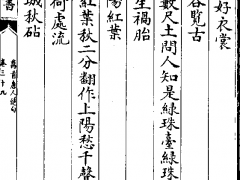 好衣裳
谷覽古
數尺土問人知是綠珠臺綠珠
生禍胎
陽紅葉
紅葉秋二分翻作上陽愁千聲
荷處流
城秋砧
書
萬首唐人絕句
卷三十九